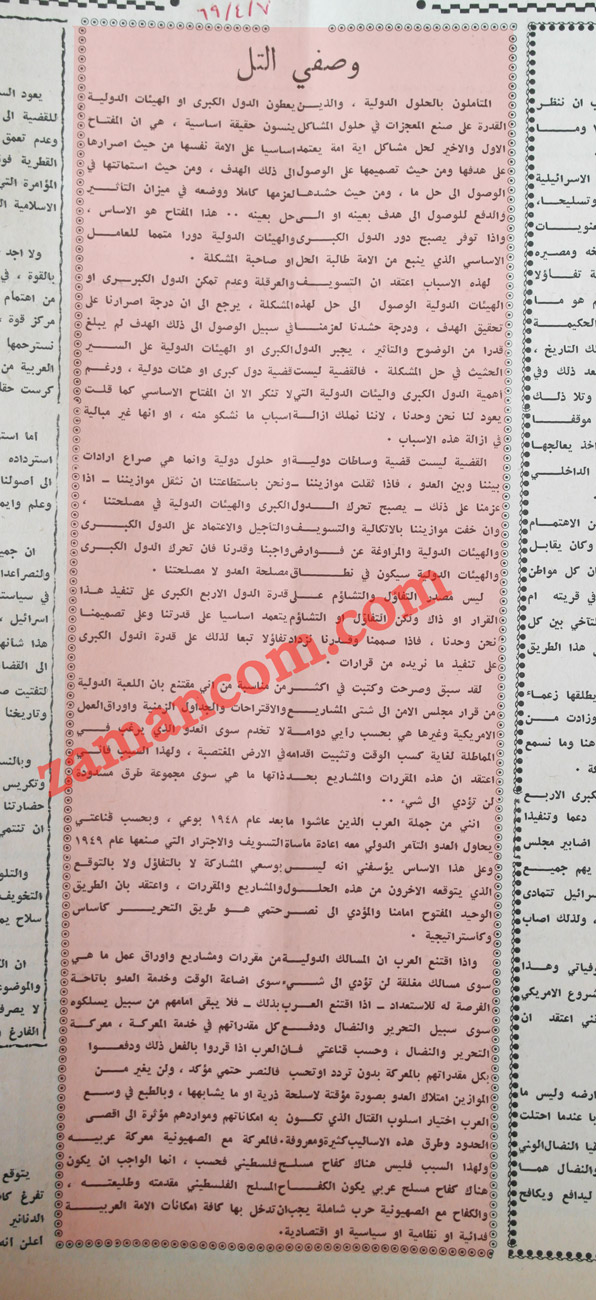 ٦٩/٤/٧
ب ان ننظر
الاسرائيلية
وتسليحا،
عنويات
خه ومصيره
ة تفاؤلا
م هو ما
الحكيمة
ك التاريخ ،
عد ذلك وفي
وتلا ذلك
موقفا
اخذ يعالجها
الداخلي
ن الاهتمام
وكان يقابل
ان كل مواطن
في قريته ام
لتآخي بين كل
هذا الطريق
يطلقها زعماء
وزادت من
هنا وما نسمع
كبرى الاربع
دعما وتنفيذا
اضابير مجلس
يهم جميع
سرائيل تتمادى
، ولذلك اصاب
وفياتي وهذا
شروع الامريكي
نني اعتقد ان
ارضه وليس ما
با عندما احتلت
والنضال هما
ليدافع ويكافح
وصفي التل
المتاملون بالحلول الدولية ، والذين يعطون الدول الكبرى او الهيئات الدولية
القدرة على صنع المعجزات في حلول المشاكل ينسون حقيقة اساسية ، هي ان المفتاح
الاول والاخير لحل مشاكل اية امة يعتمد اساسيا على الامة نفسها من حيث اصرارها
على هدفها ومن حيث تصميمها على الوصول الى ذلك الهدف ، ومن حيث استماتتها في
الوصول الى حل ما ، ومن حيث حشدها لعزمها كاملا ووضعه في ميزان التاثير
والدفع للوصول الى هدف بعينه او الى حل بعينه ٠٠ هذا المفتاح هو الاساس ،
واذا توفر يصبح دور الدول الكبرى والهيئات الدولية دورا متمما للعامل
الاساسي الذي ينبع من الامة طالبة الحل او صاحبة المشكلة ٠
لهذه الاسباب اعتقد ان التسويف والعرقلة وعدم تمكن الدول الكبرى او
الهيئات الدولية الوصول الى حل لهذه المشكلة ، يرجع الى ان درجة اصرارنا على
تحقيق الهدف ، ودرجة حشدنا لعزمنا في سبيل الوصول الى ذلك الهدف لم يبلغ
قدرا من الوضوح والتاثير ، يجبر الدول الكبرى او الهيئات الدولية على السير
الحثيث في حل المشكلة ٠ فالقضية ليست قضية دول كبرى او هئات دولية ، ورغم
اهمية الدول الكبرى والهيئات الدولية التي لا تنكر الا ان المفتاح الاساسي كما قلت
يعود لنا نحن وحدنا ، لاننا نملك ازالة اسباب ما نشكو منه ، او انها غير مبالية
في ازالة هذه الاسباب ٠
القضية ليست قضية وساطات دولية او حلول دولية وانما هي صراع ارادات
بيننا وبين العدو ، فاذا ثقلت موازيننا ــ ونحن باستطاعتنا ان نثقل موازيننا ــ اذا
عزمنا على ذلك ــ يصبح تحرك الدول الكبرى والهيئات الدولية في مصلحتنا ،
وان خفت موازيننا بالاتكالية والتسويف والتأجيل والاعتماد على الدول الكبرى
والهيئات الدولية والمراوغة عن فوارض واجبنا وقدرنا فان تحرك الدول الكبرى
والهيئات الدولية سيكون في نطاق مصلحة العدو لا مصلحتنا ٠
ليس مصدر التفاؤل والتشاؤم على قدرة الدول الاربع الكبرى على تنفيذ هذا
القرار او ذاك ولكن التفاؤل او التشاؤم يتعمد اساسيا على قدرتنا وعلى تصميمنا
نحن وحدنا ، فاذا صممنا وقدرنا نزداد تفاؤلا تبعا لذلك على قدرة الدول الكبرى
على تنفيذ ما نريده من قرارات ٠
لقد سبق وصرحت وكتبت في اكثر من مناسبة من اني مقتنع بان اللعبة الدولية
من قرار مجلس الامن الى شتى المشاريع والاقتراحات والجداول الزمنية واوراق العمل
الامريكية وغيرها هي بحسب رايي دوامة لا تخدم سوى العدو الذي يرغب في
المماطلة لغاية كسب الوقت وتثبيت اقدامه في الارض المغتصبة ، ولهذا السبب فانني
اعتقد ان هذه المقررات والمشاريع بحد ذاتها ما هي سوى مجموعة طرق مسدودة
لن تؤدي الى شيء ٠٠
انني من جملة العرب الذين عاشوا ما بعد عام ١٩٤٨ بوعي ، وبحسب قناعتي
يحاول العدو التآمر الدولي معه اعادة ماساة التسويف والاجترار التي صنعها عام ١٩٤٩
وعلى هذا الاساس يؤسفني انه ليس بوسعي المشاركة لا بالتفاؤل ولا بالتوقع
الذي يتوقعه الاخرون من هذه الحلول والمشاريع والمقررات ، واعتقد بان الطريق
الوحيد المفتوح امامنا والمؤدي الى نصر حتمي هو طريق التحرير كاساس
وكاستراتيجية ٠
واذا اقتنع العرب ان المسالك الدولية من مقررات ومشاريع واوراق عمل ما هي
سوى مسالك مغلقة لن تؤدي الى شيء سوى اضاعة الوقت وخدمة العدو باتاحة
الفرصة له للاستعداد ــ اذا اقتنع العرب بذلك ــ فلا يبقى امامهم من سبيل يسلكوه
سوى سبيل التحرير والنضال ودفع كل مقدراتهم في خدمة المعركة ، معركة
التحرير والنضال ، وحسب قناعتي فان العرب اذا قرروا بالفعل ذلك ودفعوا
بكل مقدراتهم بالمعركة بدون تردد او تحسب فالنصر حتمي مؤكد ، ولن يغير من
الموازين امتلاك العدو بصورة مؤقتة لاسلحة ذرية او ما يشابهها ، وبالطبع في وسع
العرب اختيار اسلوب القتال الذي تكون به امكاناتهم ومواردهم مؤثرة الى اقصى
الحدود وطرق هذه الاساليب كثيرة ومعروفة ٠ فالمعركة مع الصهيونية معركة عربيه
ولهذا السبب فليس هناك كفاح مسلح فلسطيني فحسب ، انما الواجب ان يكون
هناك كفاح مسلح عربي يكون الكفاح المسلح الفلسطيني مقدمته وطليعته ،
والكفاح مع الصهيونية حرب شاملة يجب ان تدخل بها كافة امكانات الامة العربية
فدائية او نظامية او سياسية او اقتصادية ٠
zamancom.com
يعود الس
للقضية الى
وعدم تعمق
القطرية فوق
المؤامرة التي
الاسلامية ال
ولا اجد
بالقوة ، في
من اهتمام
مركز قوة ،
نسترحمها
العربية من
كرست حقا
اما است
استرداده
الى اصولنا
وعلم وايم
ان جمي
ولنصر اعدا
في سياست
اسرائيل ،
هذا شانها
الى القضا
لتفتيت ص
وتاريخنا
وبالنس
وتكريس
حضارتنا
ان تنتمي
والتلو
التخويف
سلاح يم
ان ال
والموضو
لا يصرف
الفارغ
يتوقع
تفرغ كا
الدنانير
اعلن انه